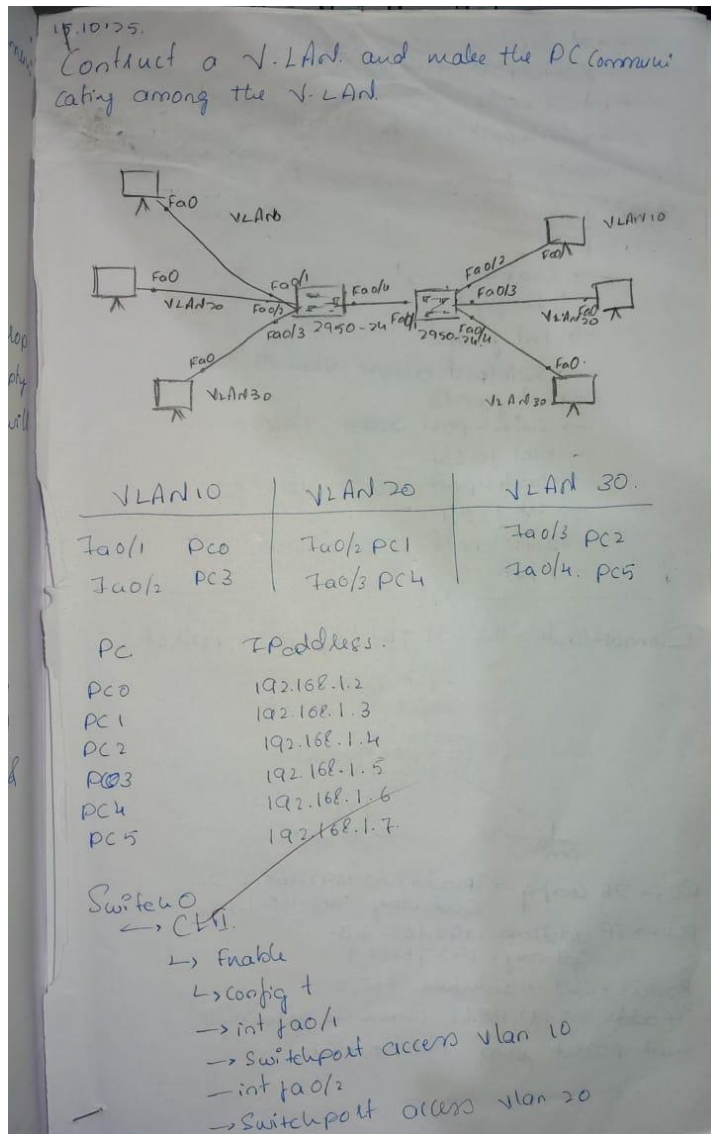 15.10.25.
Contruct a V.LAN. and make the PC Communi
cating among the V-LAN.
Fa0
VLAN
Fa0/2
Fa0/1
VLAN10
Fa0
VLAN20
Fa0/1
Fa0/2
Fa0/3
2950-24
Fa0/4
Fa0/1
2950-24
Fa0/4
Fa0/3
VLAN20
Fa0
Fa0
VLAN30
Fa0.
VLAN30
VLAN10 VLAN 20 VLAN 30.
Fa0/1 PC0 Fa0/2 PC1 Fa0/3 PC2
Fa0/2 PC3 Fa0/3 PC4 Fa0/4. PC5
PC IPaddress.
PC0 192.168.1.2
PC1 192.168.1.3
PC2 192.168.1.4
PC3 192.168.1.5
PC4 192.168.1.6
PC5 192.168.1.7.
Switch0
CLI.
Enable
config t
→ int fa0/1
→ Switchport access vlan 10
— int fa0/2
→ Switchport access vlan 20